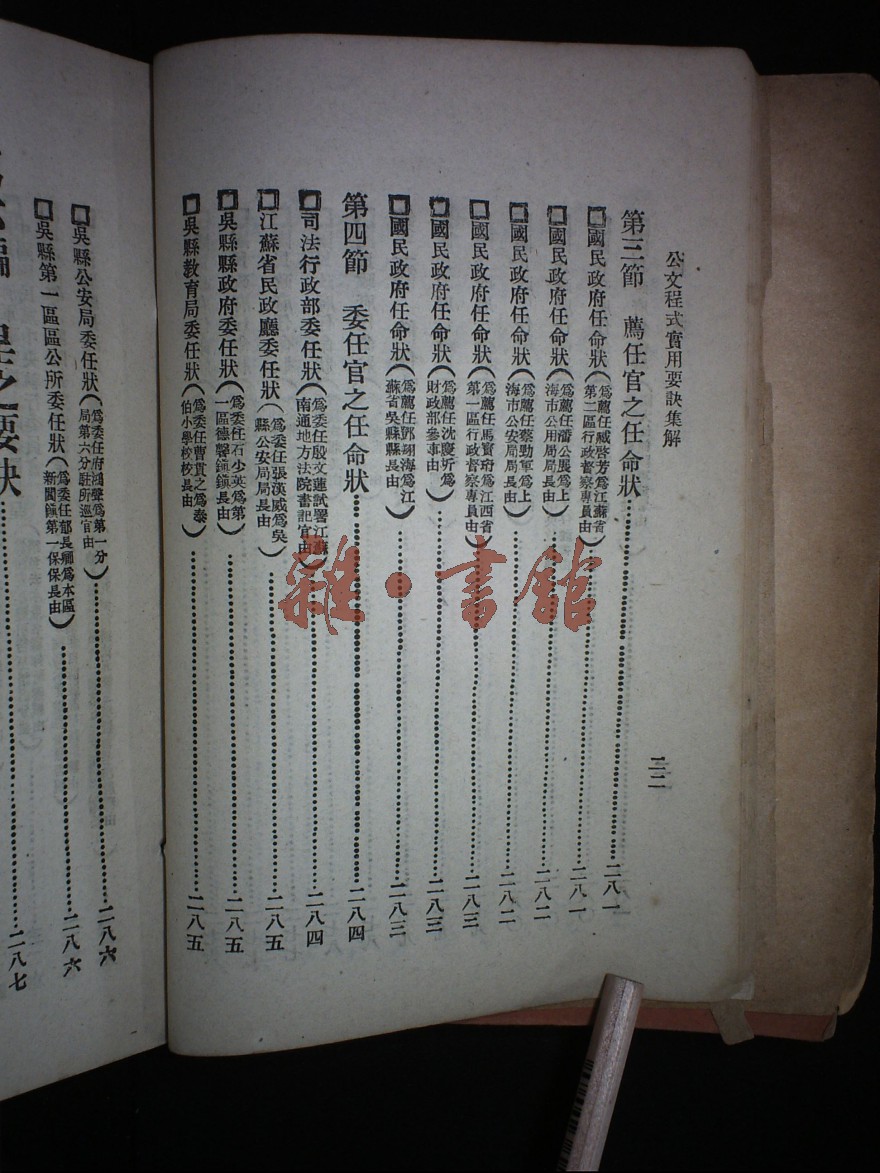 公文程式實用要訣集解
二二
第三節 薦任官之任命狀 二八一
國民政府任命狀(爲薦任臧啓芳爲江蘇省第二區行政督察專員由) 二八一
國民政府任命狀(爲薦任潘公展爲上海市公用局局長由) 二八二
國民政府任命狀(爲薦任蔡勁軍爲上海市公安局局長由) 二八二
國民政府任命狀(爲薦任馬寶珩爲江西省第一區行政督察專員由) 二八三
國民政府任命狀(爲薦任沈慶圻爲財政部參事由) 二八三
國民政府任命狀(爲薦任鄧翊海爲江蘇省吳縣縣長由) 二八三
第四節 委任官之任命狀 二八四
司法行政部委任狀(爲委任殷文蓮試署江蘇南通地方法院書記官由) 二八四
江蘇省民政廳委任狀(爲委任張漢威爲吳縣公安局局長由) 二八五
吳縣縣政府委任狀(爲委任石少英爲第一區德馨鎮鎮長由) 二八五
吳縣教育局委任狀(爲委任曹貫之爲泰伯小學校校長由) 二八五
吳縣公安局委任狀(爲委任府鴻聲爲第一分局第六分駐所巡官由) 二八六
吳縣第一區區公所委任狀(爲委任郁長卿爲本區新閶鎮第一保保長由) 二八六
之要訣 二八七
雜·書館